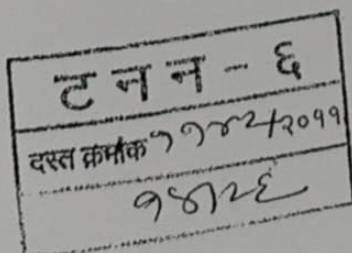 ट न न - ६
दस्त क्रमांक ११४२/२०११
१४/२६